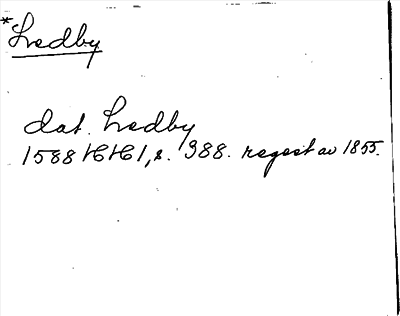 *Ledby
dat. Ledby
1588 HH 1, s. 388. regest av 1855.